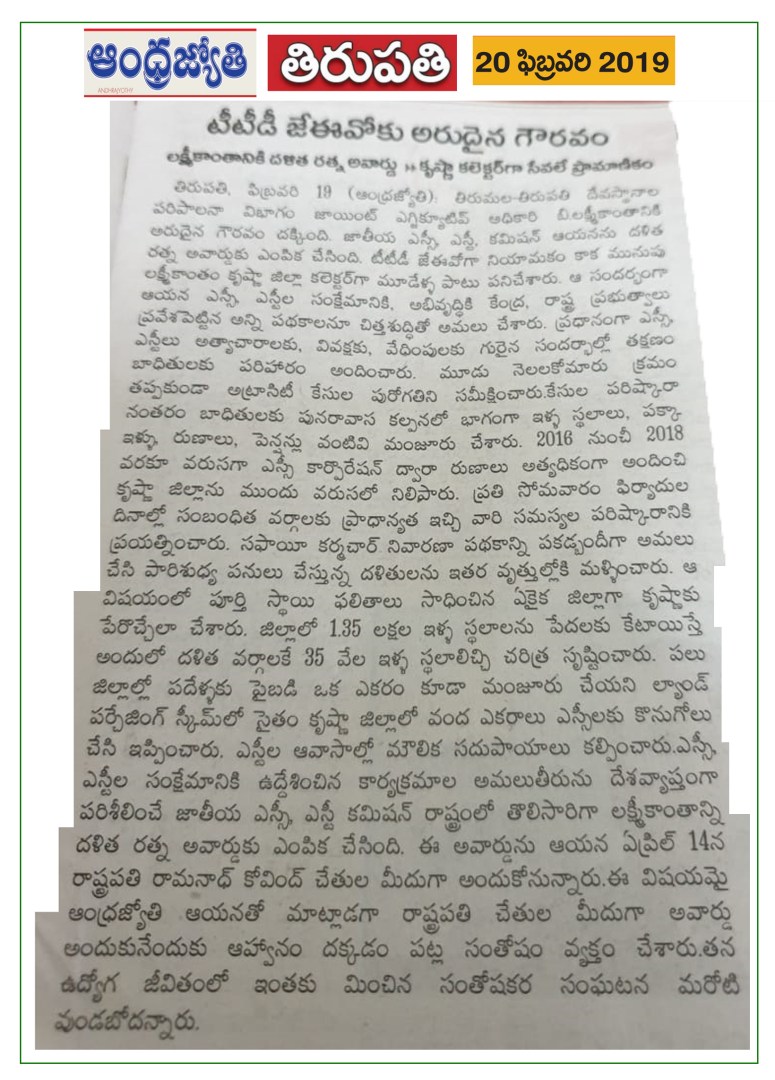 ఆంధ్రజ్యోతి
ANDHRAJYOTHY
తిరుపతి
20 ఫిబ్రవరి 2019
టీటీడీ జేఈవోకు అరుదైన గౌరవం
లక్ష్మీకాంతానికి దళిత రత్న అవార్డు >> కృష్ణా కలెక్టర్‌గా సేవలే ప్రామాణికం
తిరుపతి, ఫిబ్రవరి 19 (ఆంధ్రజ్యోతి): తిరుమల-తిరుపతి దేవస్థానాల
పరిపాలనా విభాగం జాయింట్ ఎగ్జిక్యూటివ్ అధికారి బి.లక్ష్మీకాంతానికి
అరుదైన గౌరవం దక్కింది. జాతీయ ఎస్సీ, ఎస్టీ, కమిషన్ ఆయనను దళిత
రత్న అవార్డుకు ఎంపిక చేసింది. టీటీడీ జేఈవోగా నియామకం కాక మునుపు
లక్ష్మీకాంతం కృష్ణా జిల్లా కలెక్టర్‌గా మూడేళ్ళ పాటు పనిచేశారు. ఆ సందర్భంగా
ఆయన ఎస్సీ, ఎస్టీల సంక్షేమానికి, అభివృద్ధికి కేంద్ర, రాష్ట్ర ప్రభుత్వాలు
ప్రవేశపెట్టిన అన్ని పథకాలనూ చిత్తశుద్ధితో అమలు చేశారు. ప్రధానంగా ఎస్సీ,
ఎస్టీలు అత్యాచారాలకు, వివక్షకు, వేధింపులకు గురైన సందర్భాల్లో తక్షణం
బాధితులకు పరిహారం అందించారు. మూడు నెలలకోమారు క్రమం
తప్పకుండా అట్రాసిటీ కేసుల పురోగతిని సమీక్షించారు.కేసుల పరిష్కారా
నంతరం బాధితులకు పునరావాస కల్పనలో భాగంగా ఇళ్ళ స్థలాలు, పక్కా
ఇళ్ళు, రుణాలు, పెన్షన్లు వంటివి మంజూరు చేశారు. 2016 నుంచీ 2018
వరకూ వరుసగా ఎస్సీ కార్పొరేషన్ ద్వారా రుణాలు అత్యధికంగా అందించి
కృష్ణా జిల్లాను ముందు వరుసలో నిలిపారు. ప్రతి సోమవారం ఫిర్యాదుల
దినాల్లో సంబంధిత వర్గాలకు ప్రాధాన్యత ఇచ్చి వారి సమస్యల పరిష్కారానికి
ప్రయత్నించారు. సఫాయీ కర్మచార్ నివారణా పథకాన్ని పకడ్బందీగా అమలు
చేసి పారిశుధ్య పనులు చేస్తున్న దళితులను ఇతర వృత్తుల్లోకి మళ్ళించారు. ఆ
విషయంలో పూర్తి స్థాయి ఫలితాలు సాధించిన ఏకైక జిల్లాగా కృష్ణాకు
పేరొచ్చేలా చేశారు. జిల్లాలో 1.35 లక్షల ఇళ్ళ స్థలాలను పేదలకు కేటాయిస్తే
అందులో దళిత వర్గాలకే 35 వేల ఇళ్ళ స్థలాలిచ్చి చరిత్ర సృష్టించారు. పలు
జిల్లాల్లో పదేళ్ళకు పైబడి ఒక ఎకరం కూడా మంజూరు చేయని ల్యాండ్
పర్చేజింగ్ స్కీమ్‌లో సైతం కృష్ణా జిల్లాలో వంద ఎకరాలు ఎస్సీలకు కొనుగోలు
చేసి ఇప్పించారు. ఎస్టీల ఆవాసాల్లో మౌలిక సదుపాయాలు కల్పించారు.ఎస్సీ,
ఎస్టీల సంక్షేమానికి ఉద్దేశించిన కార్యక్రమాల అమలుతీరును దేశవ్యాప్తంగా
పరిశీలించే జాతీయ ఎస్సీ, ఎస్టీ కమిషన్ రాష్ట్రంలో తొలిసారిగా లక్ష్మీకాంతాన్ని
దళిత రత్న అవార్డుకు ఎంపిక చేసింది. ఈ అవార్డును ఆయన ఏప్రిల్ 14న
రాష్ట్రపతి రామనాధ్ కోవింద్ చేతుల మీదుగా అందుకోనున్నారు.ఈ విషయమై
ఆంధ్రజ్యోతి ఆయనతో మాట్లాడగా రాష్ట్రపతి చేతుల మీదుగా అవార్డు
అందుకునేందుకు ఆహ్వానం దక్కడం పట్ల సంతోషం వ్యక్తం చేశారు.తన
ఉద్యోగ జీవితంలో ఇంతకు మించిన సంతోషకర సంఘటన మరోటి
వుండబోదన్నారు.